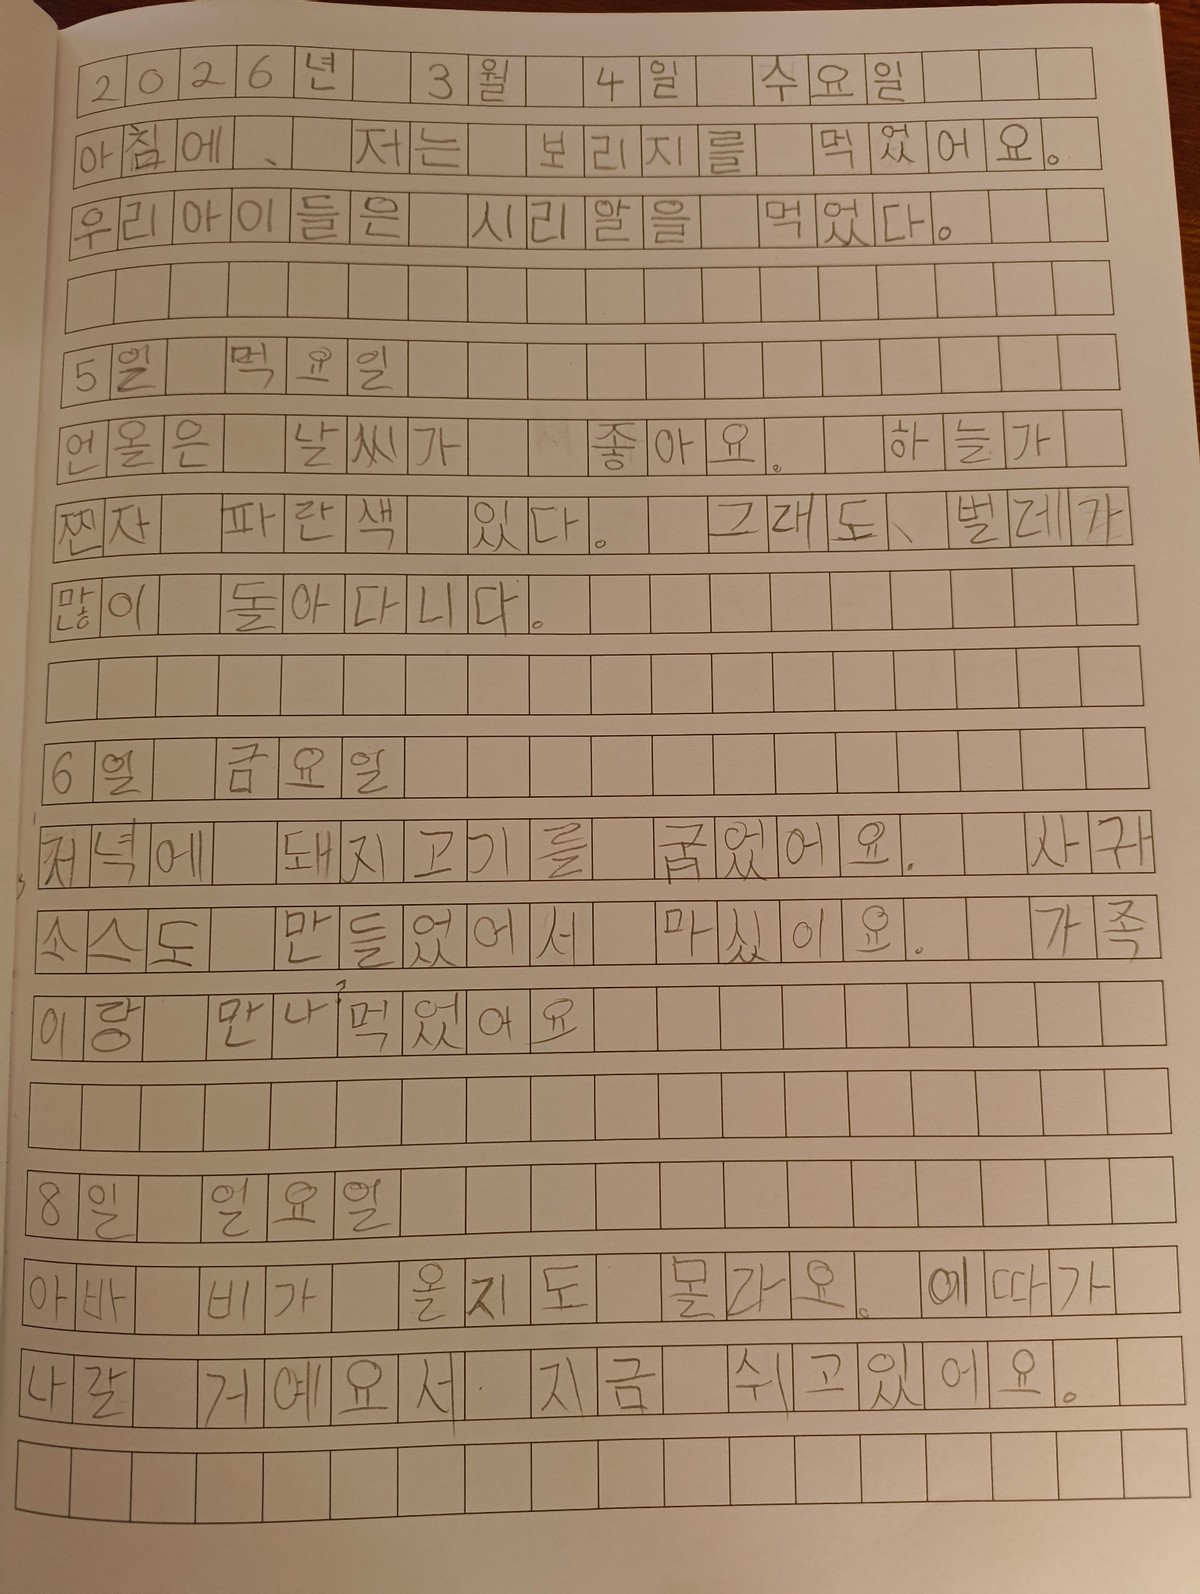 2026년 3월 4일 수요일
아침에、 저는 보리지를 먹었어요。
우리아이들은 시리알을 먹었다。
5일 먹요일
언올은 날씨가 좋아요. 하늘가
찐자 파란색 있다. 그래도、벌레가
많이 돌아다니다.
6일 금요일
저녁에 돼지고기를 굽었어요. 사귀
소스도 만들었어서 마싰이요. 가족
이랑 만나 먹었어요
8일 일요일
아바 비가 올지도 몰라요. 에따가
나갈 거예요서 지금 쉬고있어요。